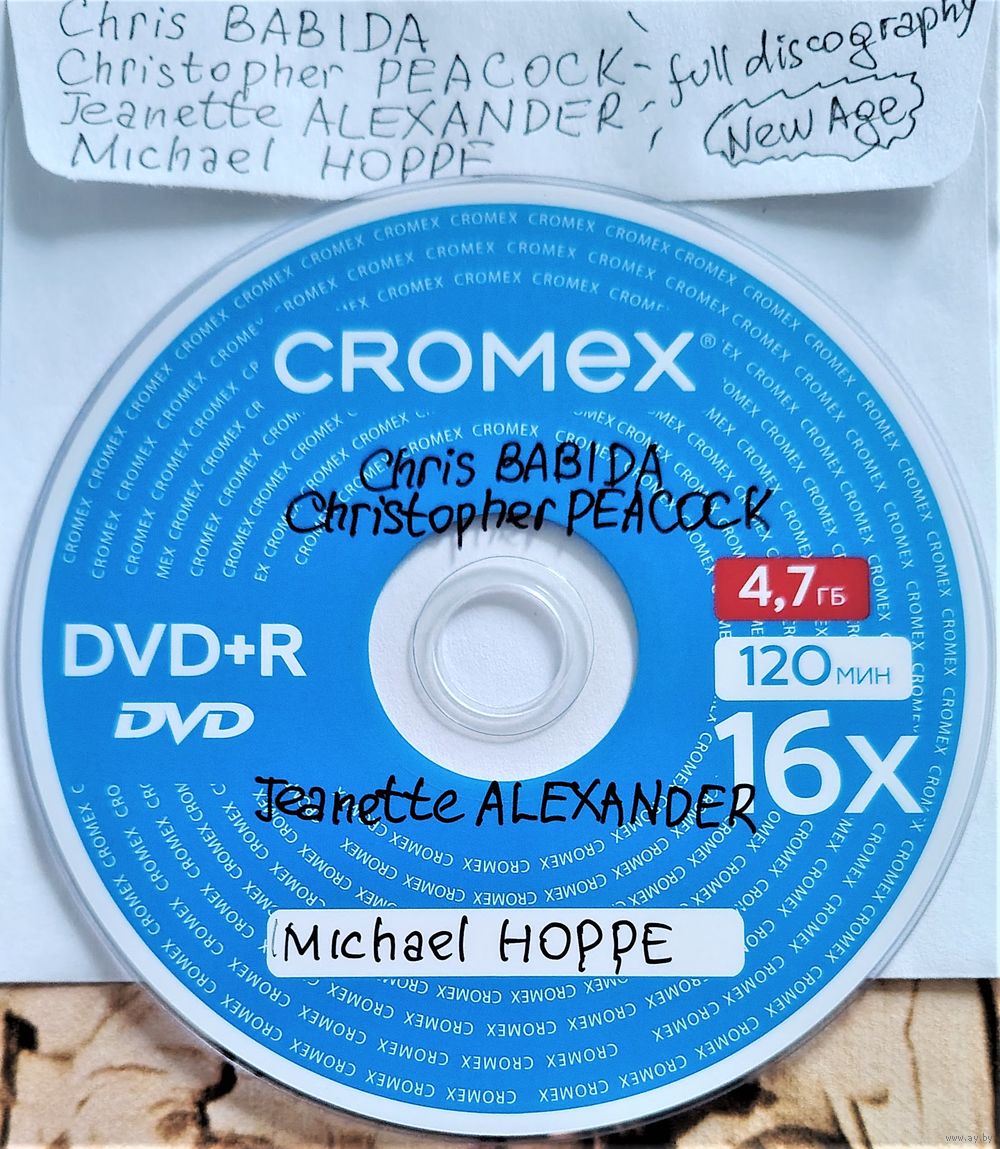 Chris BABIDA
Christopher PEACOCK - full discography
Jeanette ALEXANDER
New Age
Michael HOPPE
CROMEX®
Chris BABIDA
Christopher PEACOCK
4,7 ГБ
DVD+R
120 МИН
DVD
16x
Jeanette ALEXANDER
Michael HOPPE
www.ay.by